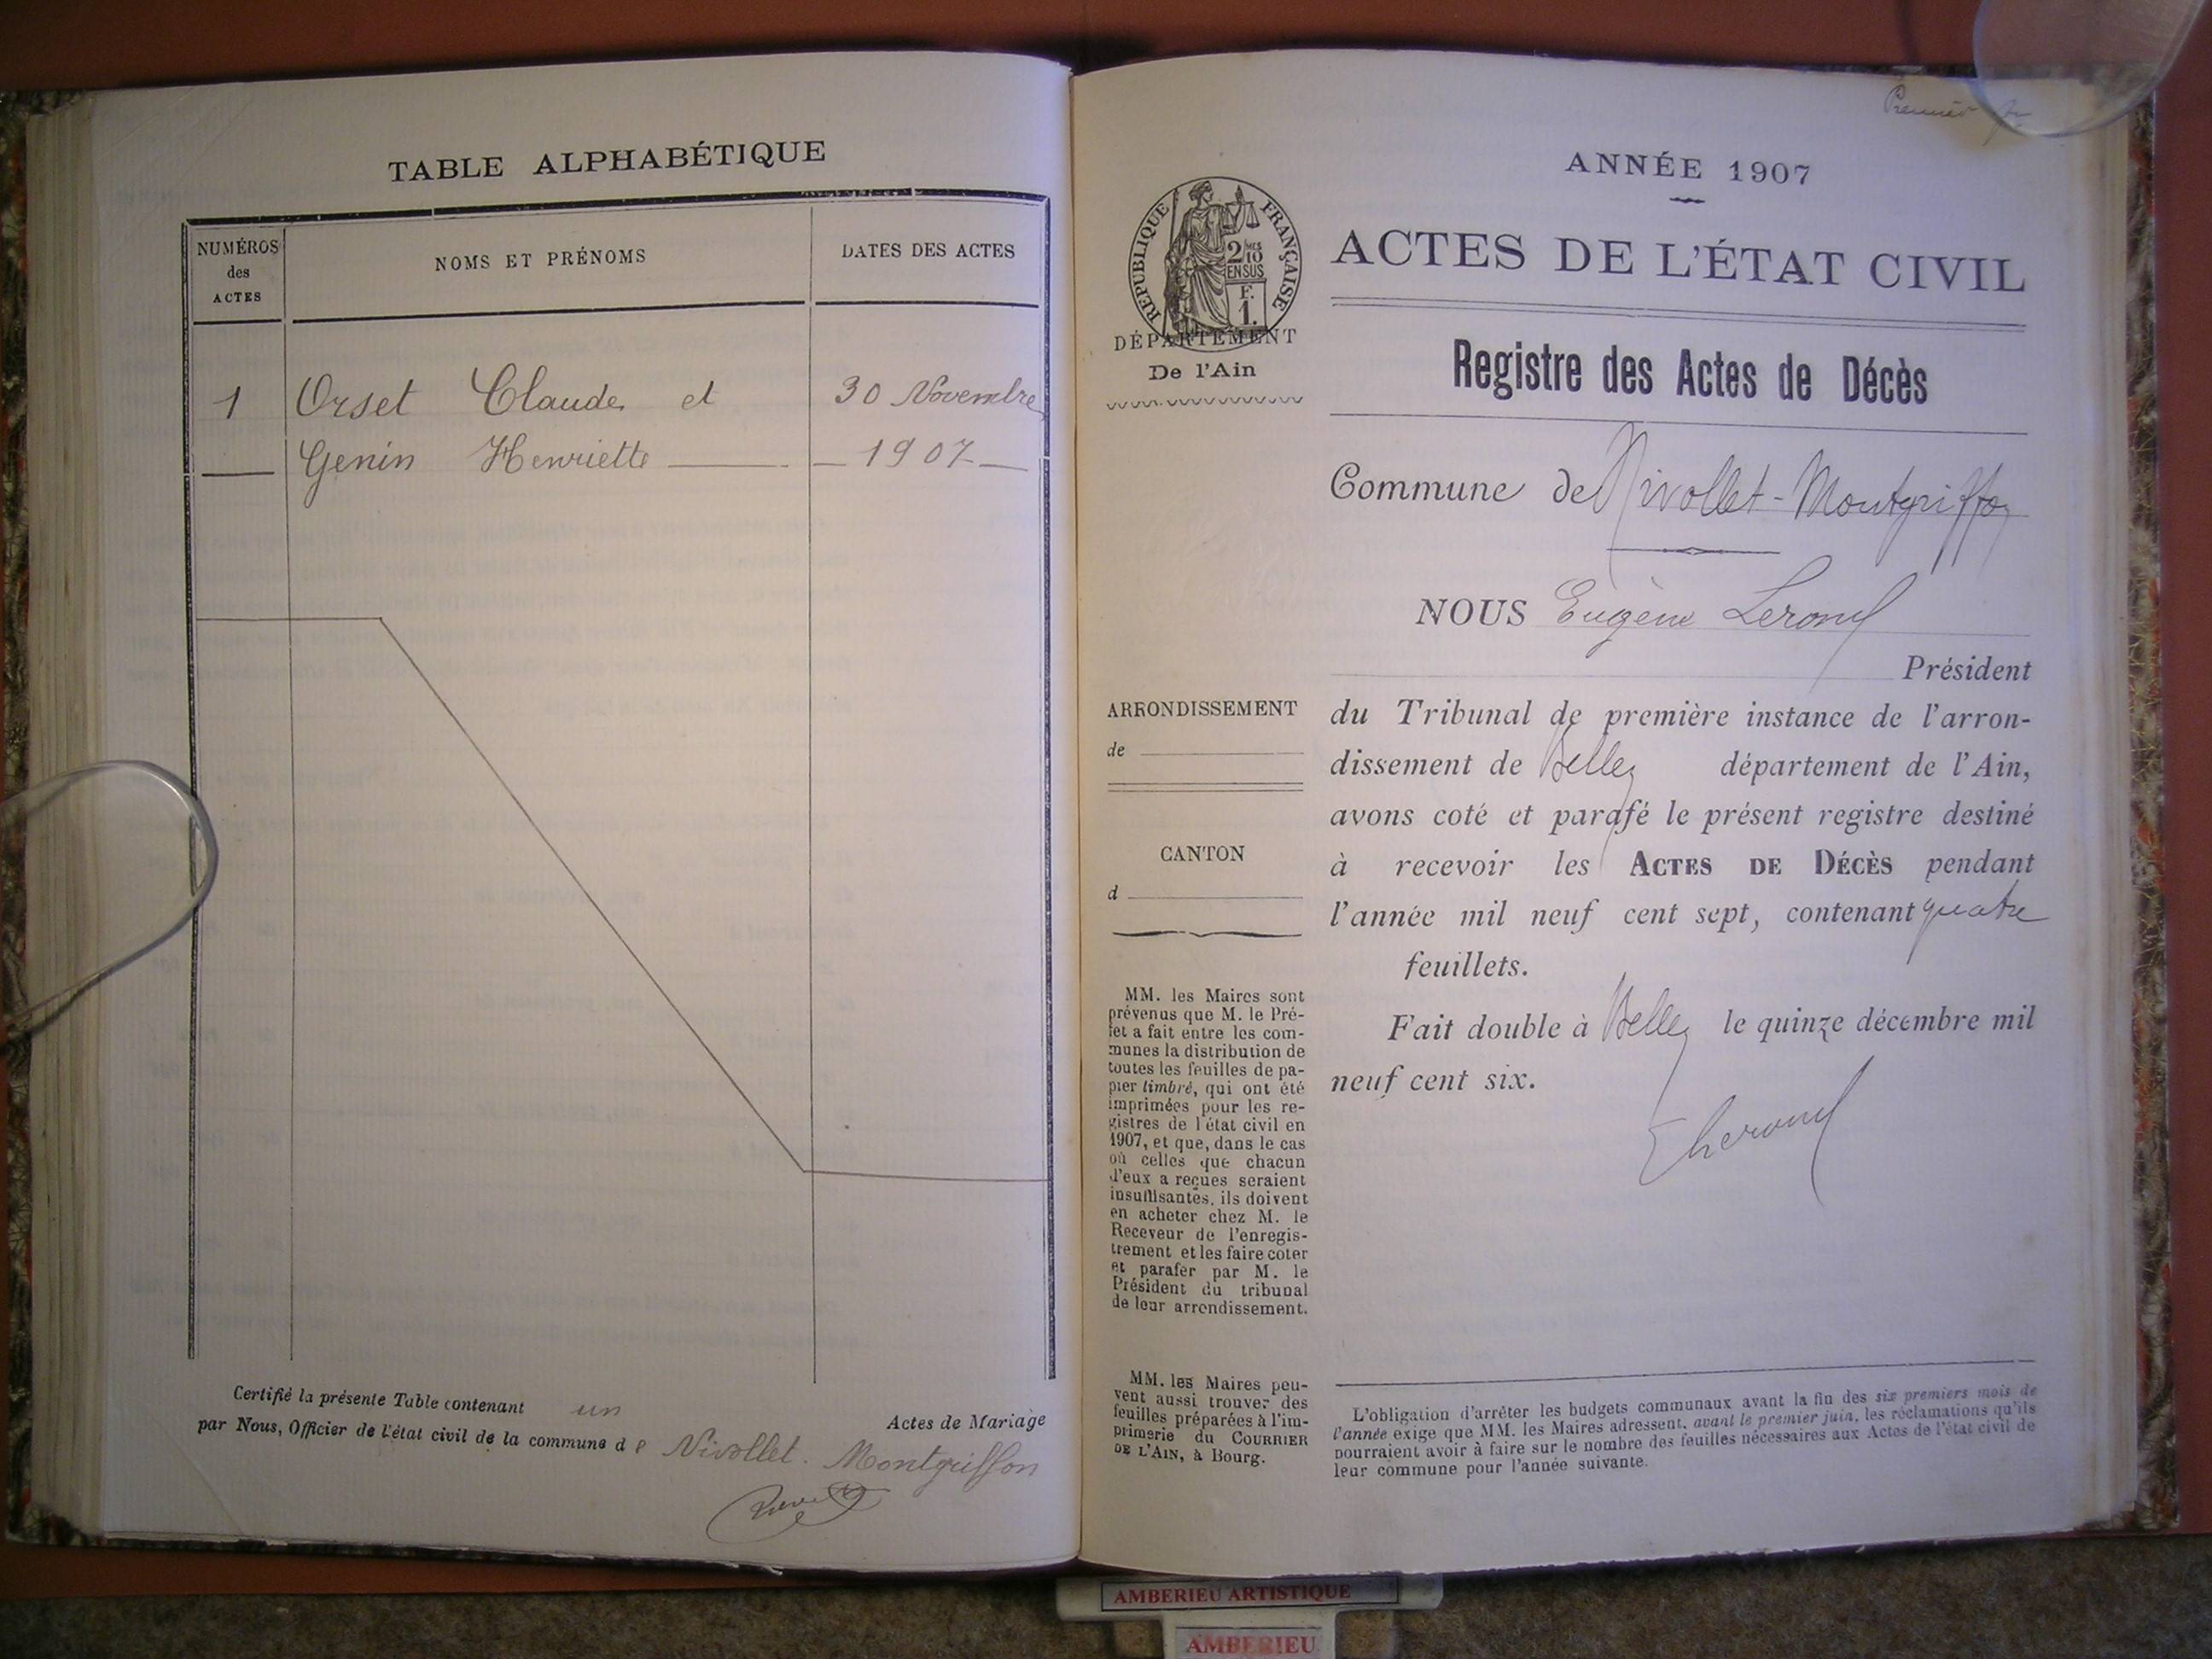 TABLE ALPHABÉTIQUE
NUMÉROS
des
ACTES
NOMS ET PRÉNOMS
DATES DES ACTES
1 Orset Claude et 30 Novembre
Genin Henriette 1907
Certifié la présente Table contenant un Actes de Mariage
par Nous, Officier de l'état civil de la commune de Nivollet-Montgriffon
Premier
ANNÉE 1907
RÉPUBLIQUE FRANÇAISE
2/10
EN SUS
F.
1.
DÉPARTEMENT
De l'Ain
ACTES DE L'ÉTAT CIVIL
Registre des Actes de Décès
Commune de Nivollet-Montgriffon
NOUS Eugène
Président
du Tribunal de première instance de l'arron-
dissement de Belley département de l'Ain,
avons coté et parafé le présent registre destiné
à recevoir les ACTES DE DÉCÈS pendant
l'année mil neuf cent sept, contenant quatre
feuillets.
Fait double à Belley le quinze décembre mil
neuf cent six.
ARRONDISSEMENT
de
CANTON
d
MM. les Maires sont
prévenus que M. le Pré-
fet a fait entre les com-
munes la distribution de
toutes les feuilles de pa-
pier timbré, qui ont été
imprimées pour les re-
gistres de l'état civil en
1907, et que, dans le cas
où celles que chacun
d'eux a reçues seraient
insuffisantes, ils doivent
en acheter chez M. le
Receveur de l'enregis-
trement et les faire coter
et parafer par M. le
Président du tribunal
de leur arrondissement.
MM. les Maires peu-
vent aussi trouver des
feuilles préparées à l'im-
primerie du COURRIER
DE L'AIN, à Bourg.
L'obligation d'arrêter les budgets communaux avant la fin des six premiers mois de
l'année exige que MM. les Maires adressent, avant le premier juin, les réclamations qu'ils
pourraient avoir à faire sur le nombre des feuilles nécessaires aux Actes de l'état civil de
leur commune pour l'année suivante.
AMBERIEU ARTISTIQUE
AMBERIEU